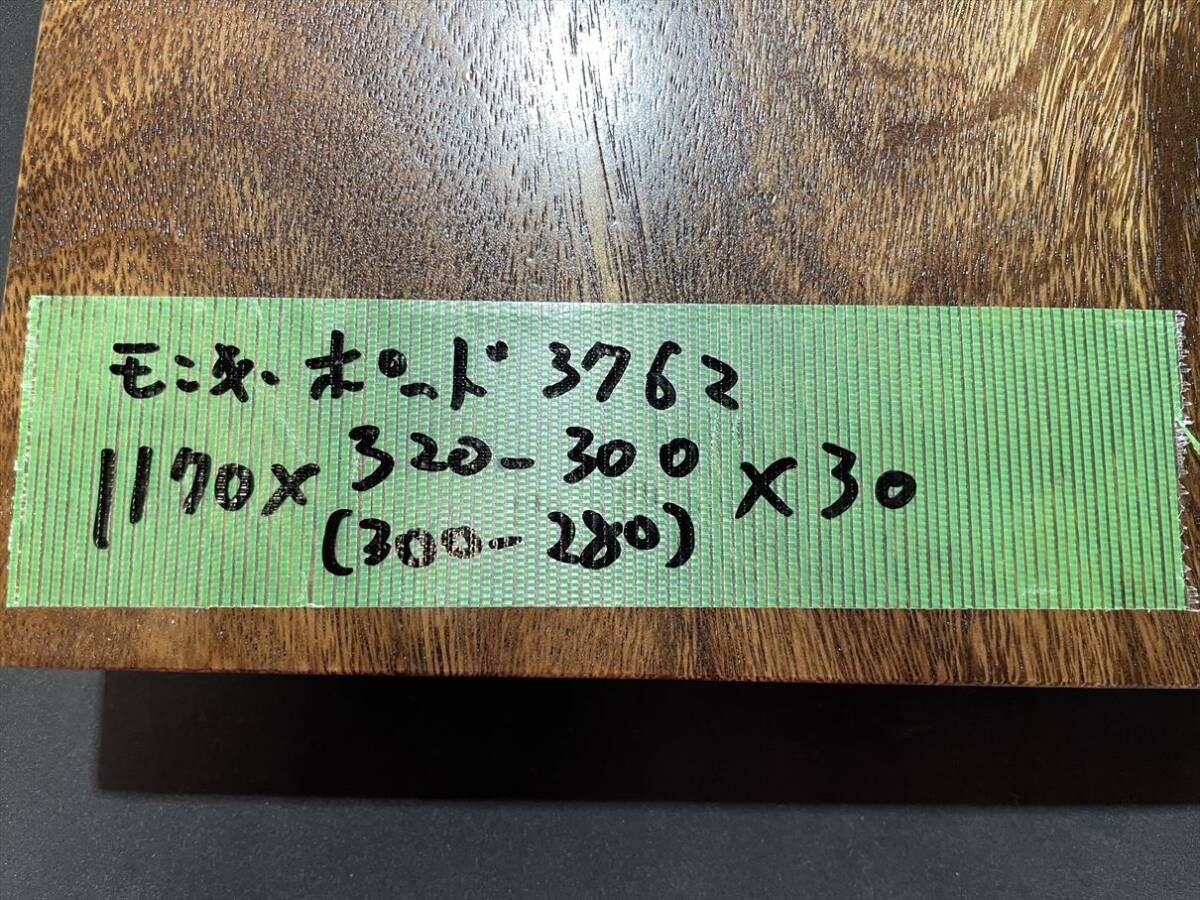 モンキーポッド 3762
1170×320-300×30
(300-280)